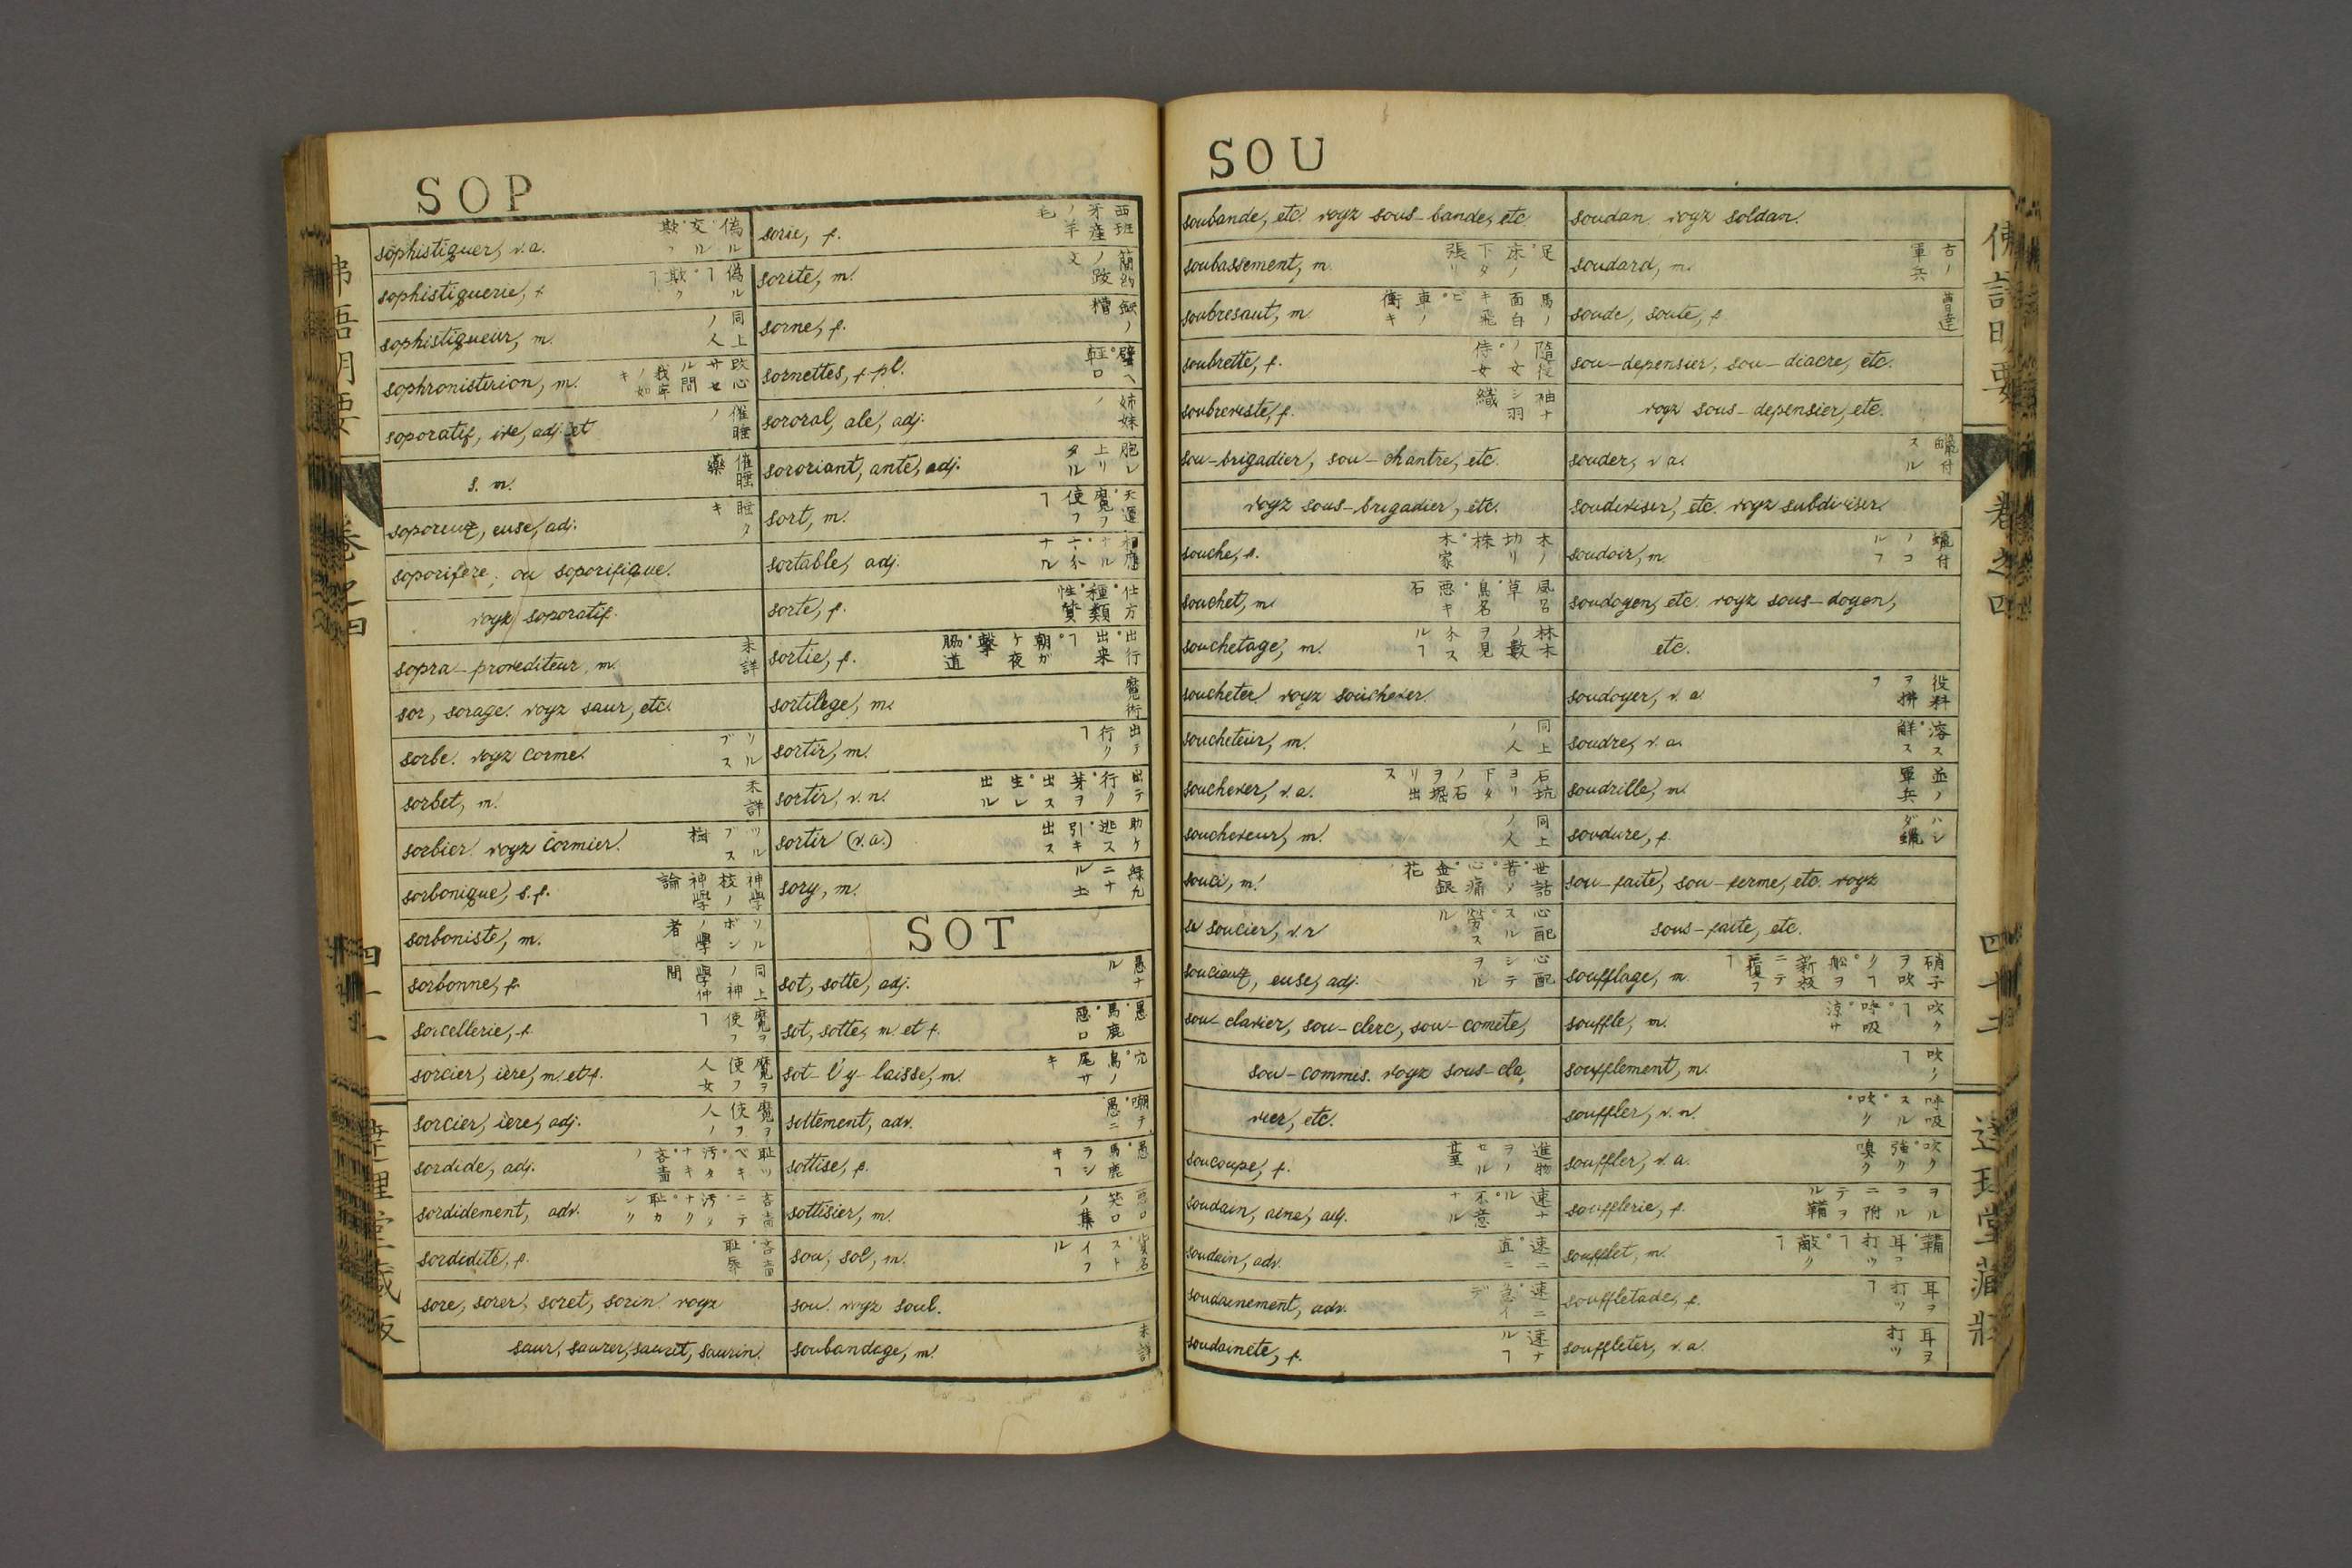 SOP
sophistiquer, v.a. 偽ル°交ル°欺ク
sophistiquerie, f. 偽ルヿ°欺クヿ
sophistiqueur, m. 同上ノ人
sophronisterion, m.
soporatif, ive, adj. et 催睡ノ
s. m. 催睡藥
soporeux, euse, adj. 睡タキ
soporifere, ou soporifique.
voyz soporatif.
sopra-provediteur, m. 未詳
sor, sorage. voyz saur, etc.
sorbe. voyz corme.
sorbet, m. 未詳
sorbier. voyz cormier.
sorbonique, s.f. 神學校ノ神學論
sorboniste, m. ソルボンノ學者
sorbonne, f. 同上ノ神學仲間
sorcellerie, f. 魔ヲ使フヿ
sorcier, iere, m. et f. 魔ヲ使フ人女
sorcier, iere, adj. 魔ヲ使フ人ノ
sordide, adj. 耻ツベキ°汚タナキ°吝嗇ノ
sordidement, adv. 吝嗇ニテ°汚タナク°耻カシク
sordidité, f. 吝嗇°耻辱
sore, sorer, soret, sorin. voyz
saur, saurer, sauret, saurin.
sorie, f. 西班牙産ノ羊毛
sorite, m.
sorne, f.
sornettes, f. pl.
sororal, ale, adj. 姉妹ノ
sororiant, ante, adj. 脹レ上リタル
sort, m. 天運°魔ヲ使フヿ
sortable, adj.
sorte, f. 仕方°種類°性質
sortie, f. 出行°出来ヿ°朝ガケ夜撃°脇道
sortilege, m. 魔術
sortir, m. 出テ行クヿ
sortir, v.n. 出テ行ク°芽ヲ出ス°生レ出ル
sortir (v.a.) 助ケ逃ス°引キ出ス
sory, m.
SOT
sot, sotte, adj. 愚ナル
sot, sotte, m. et f. 愚°馬鹿°惡口
sot-l'y-laisse, m.
sottement, adv.
sottise, f. 愚°馬鹿ラシキヿ
sottisier, m. 悪口笑口ノ集
sou, sol, m.
sou. voyz soul.
soubandage, m. 未詳
SOU
soubande, etc. voyz sous-bande, etc.
soubassement, m. 足°床ノ下タ張リ
soubresaut, m. 馬ノ面白キ飛ビ°車ノ衝キ
soubrette, f. 隨従ノ女°侍女
soubreveste, f. 袖ナシ羽織
sou-brigadier, sou-chantre, etc.
voyz sous-brigadier, etc.
souche, f. 木ノ切リ株°本家
souchet, m. 風呂草°鳥名°悪キ石
souchetage, m. 林木ノ數ヲ見
soucheter. voyz souchever.
soucheteur, m. 同上ノ人
souchever, v.a. 石坑ヨリ下タノ石ヲ堀リ出ス
soucheveur, m. 同上ノ人
souci, m. 世話°昔ノ心痛°金銀花
se soucier, v.r. 心配スル°労スル
soucieux, euse, adj. 心配シテヲル
sou-clavier, sou-clerc, sou-comete,
sou-commis. voyz sous-cla,
vier, etc.
soucoupe, f. 進物ヲノセル臺
soudain, aine, adj. 速ナル°不意ナル
soudain, adv. 速ニ°直ニ
soudainement, adv. 速ニ°急イデ
soudaineté, f. 速ナルヿ
soudan. voyz soldan.
soudard, m. 古ノ軍兵
soude, soute, f. 曹達
sou-depensier, sou-diacre, etc.
voyz sous-depensier, etc.
souder, v.a. 蠟付スル
soudiviser, etc. voyz subdiviser.
soudoir, m.
soudoyen, etc. voyz sous-doyen,
etc.
soudoyer, v.a. 役料ヲ拂フ
soudre, v.a. 溶ス°解ス
soudrille, m. 並ノ軍兵
soudure, f. ハンダ蠟
sou-faite, sou-ferme, etc. voyz
sous-faite, etc.
soufflage, m. 硝子ヲ吹クヿ°舩ヲ新板ニテ覆フヿ
souffle, m. 吹クヿ°呼吸°涼サ
soufflement, m. 吹クヿ
souffler, v.n. 呼吸スル°吹ク°
souffler, v.a. 吹ク°強ク嗅ク
soufflerie, f.
soufflet, m.
souffletade, f. 耳ヲ打ツヿ
souffleter, v.a. 耳ヲ打ツ
佛語明要 巻之四 四十二 達理堂蔵版